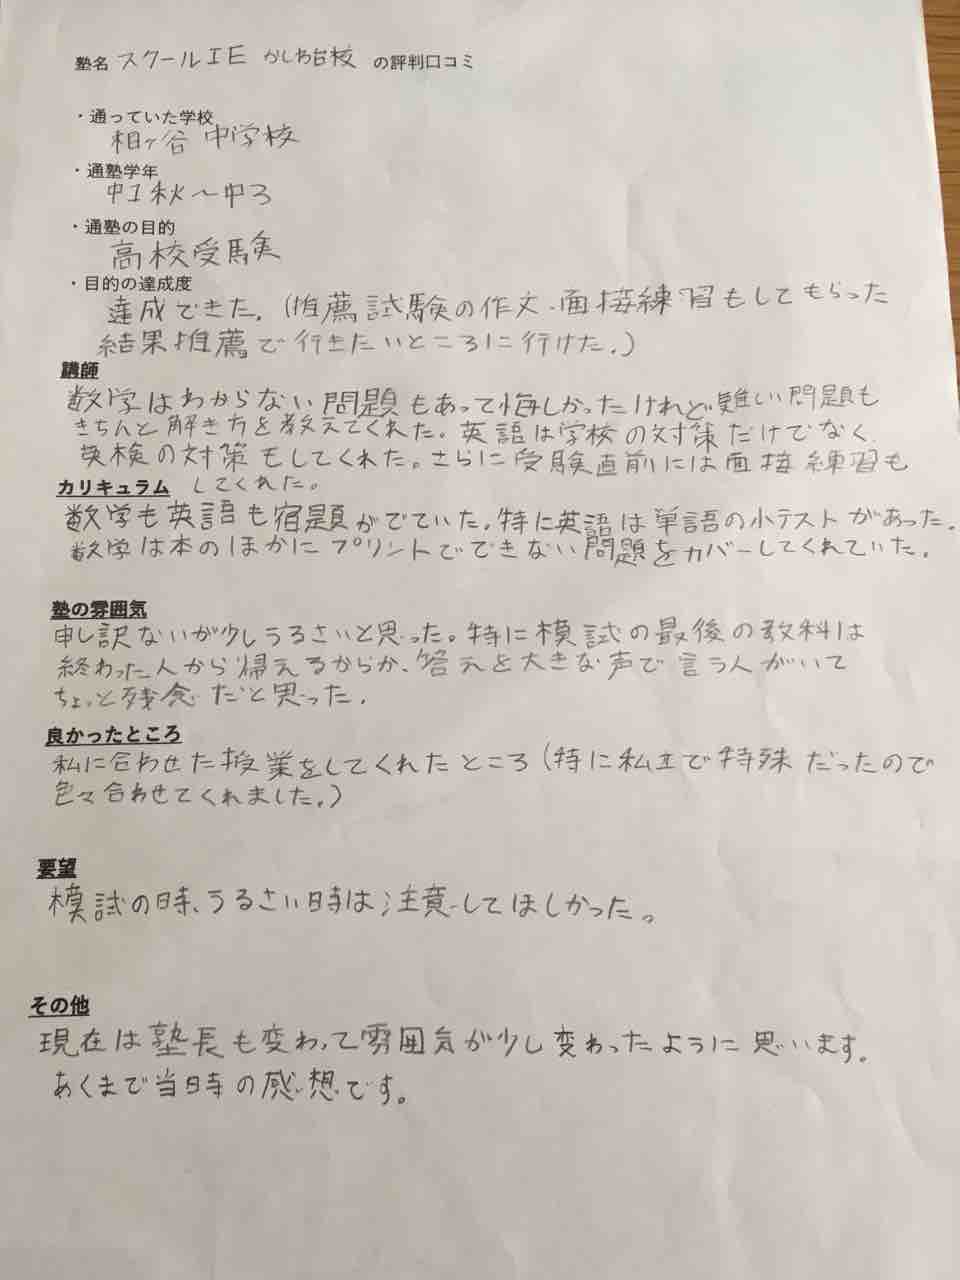 塾名 スクールIE かしわ台校 の評判口コミ
・通っていた学校
柏ヶ谷中学校
・通塾学年
中1秋～中3
・通塾の目的
高校受験
・目的の達成度
達成できた。(推薦試験の作文、面接練習もしてもらった
結果推薦で行きたいところに行けた。)
講師
数学はわからない問題もあって悔しかったけれど難しい問題も
きちんと解き方を教えてくれた。英語は学校の対策だけでなく
英検の対策もしてくれた。さらに受験直前には面接練習も
してくれた。
カリキュラム
数学も英語も宿題がでていた。特に英語は単語の小テストがあった。
数学は本のほかにプリントでできない問題をカバーしてくれていた。
塾の雰囲気
申し訳ないが少しうるさいと思った。特に模試の最後の教科は
終わった人から帰えるからか、答えを大きな声で言う人がいて
ちょっと残念だと思った。
良かったところ
私に合わせた授業をしてくれたところ(特に私立で特殊だったので
色々合わせてくれました。)
要望
模試の時、うるさい時は注意してほしかった。
その他
現在は塾長も変わって雰囲気が少し変わったように思います。
あくまで当時の感想です。